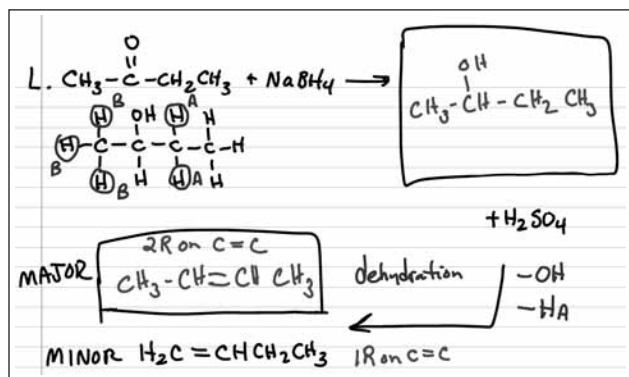 O
L. CH3-C-CH2CH3 + NaBH4 →
OH
CH3-CH-CH2 CH3
B H OH H A H
H-C-C-C-C-H
B H B H H A H
+ H2SO4
2R on C=C
MAJOR CH3-CH=CH CH3 dehydration -OH
-HA
MINOR H2C=CHCH2CH3 1R on C=C